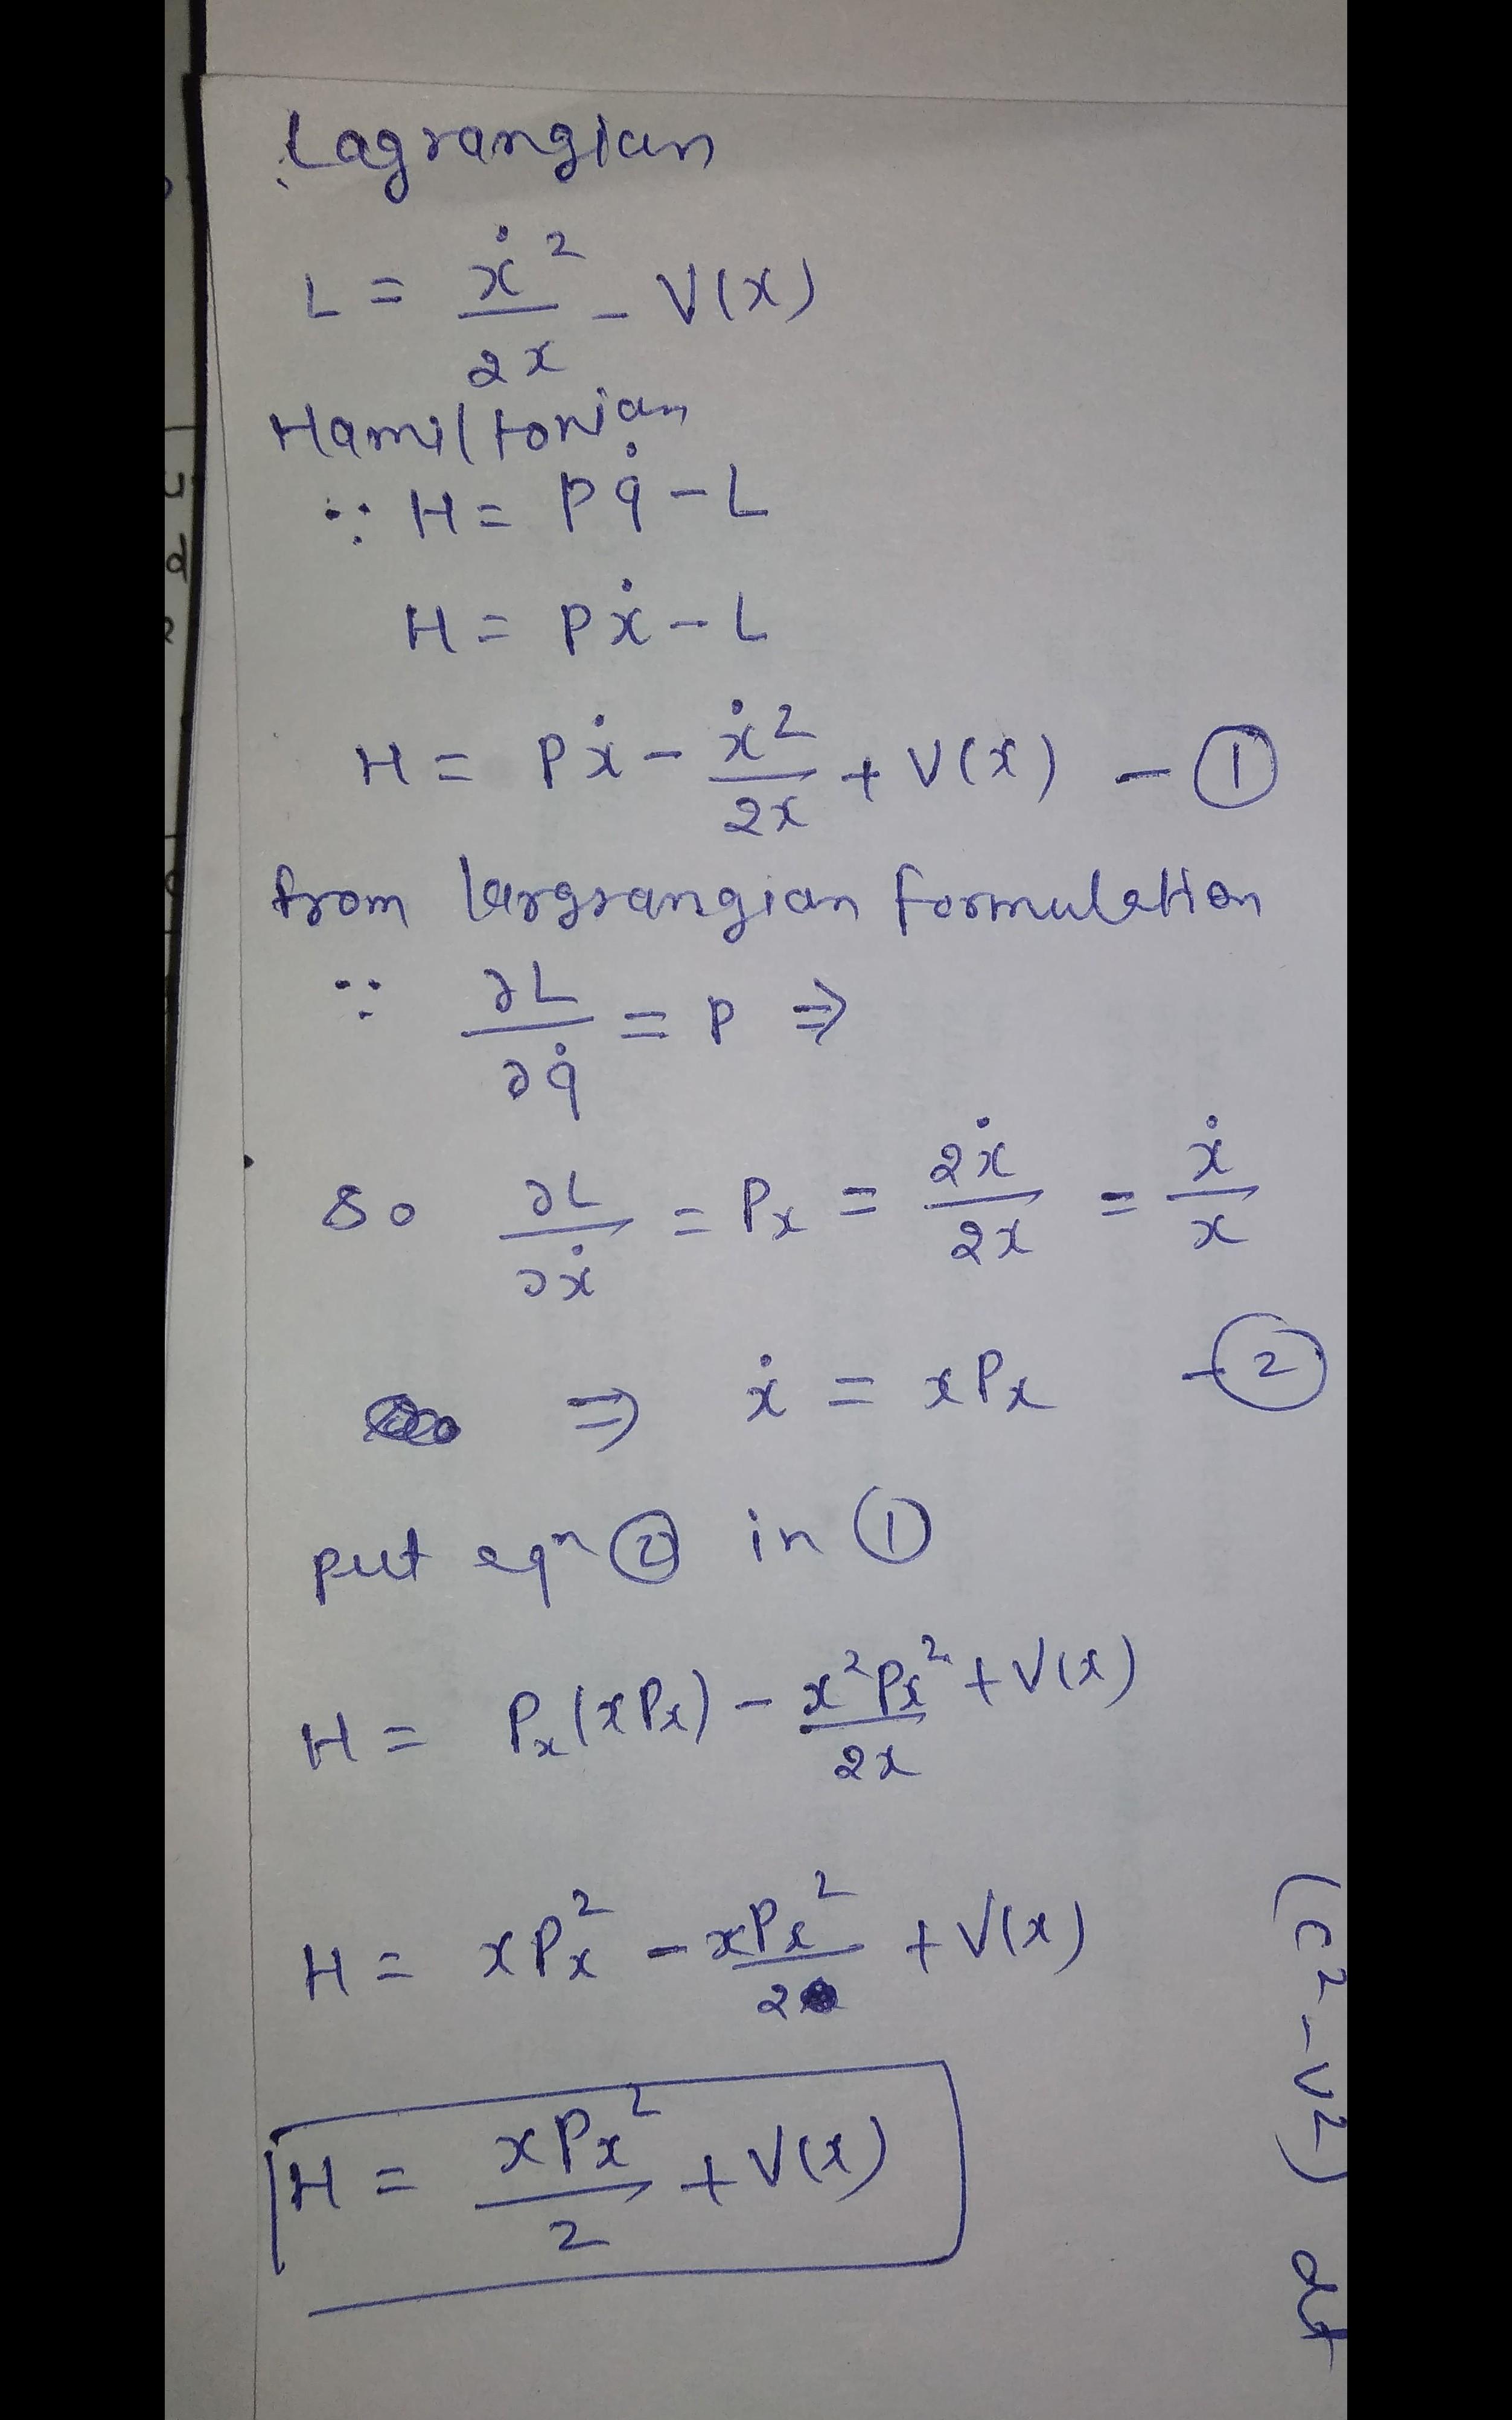 Lagrangian
L = ẋ²/2x - V(x)
Hamiltonian
∵ H = pq̇ - L
H = pẋ - L
H = pẋ - ẋ²/2x + V(x) - ①
from largrangian formulation
∵ ∂L/∂q̇ = p ⇒
so ∂L/∂ẋ = Px = 2ẋ/2x = ẋ/x
⇒ ẋ = xPx - ②
put eqⁿ ② in ①
H = Px(xPx) - x²Px²/2x + V(x)
H = xPx² - xPx²/2 + V(x)
H = xPx²/2 + V(x)
(c² - v²) dt